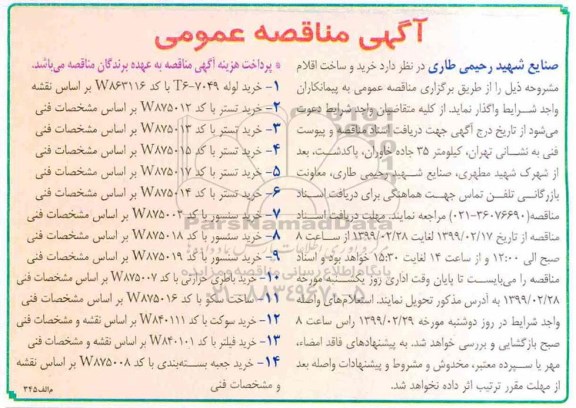 آگهی مناقصه عمومی
صنایع شهید رحیمی طاری در نظر دارد خرید و ساخت اقلام
مشروحه ذیل را از طریق برگزاری مناقصه عمومی به پیمانکاران
واجد شرایط واگذار نماید. از کلیه متقاضیان واجد شرایط دعوت
می‌شود از تاریخ درج آگهی جهت دریافت اسناد مناقصه و پیوست
فنی به نشانی تهران، کیلومتر ۳۵ جاده خاوران، پاکدشت، بعد
از شهرک شهید مطهری، صنایع شهید رحیمی طاری، معاونت
بازرگانی تلفن تماس جهت هماهنگی برای دریافت اسناد
مناقصه(۳۶۰۷۶۶۹۰-۰۲۱) مراجعه نمایند. مهلت دریافت اسناد
مناقصه از تاریخ ۱۳۹۹/۰۲/۱۷ لغایت ۱۳۹۹/۰۲/۲۸ از ساعت ۸
صبح الی ۱۲:۰۰ و از ساعت ۱۴ لغایت ۱۵:۳۰ خواهد بود و اسناد
مناقصه را می‌بایست تا پایان وقت اداری روز یکشنبه مورخه
۱۳۹۹/۰۲/۲۸ به آدرس مذکور تحویل نمایند. استعلام‌های واصله
واجد شرایط در روز دوشنبه مورخه ۱۳۹۹/۰۲/۲۹ راس ساعت ۸
صبح بازگشایی و بررسی خواهد شد. به پیشنهادهای فاقد امضاء،
مهر یا سپرده معتبر، مخدوش و مشروط و پیشنهادات واصله بعد
از مهلت مقرر ترتیب اثر داده نخواهد شد.
* پرداخت هزینه آگهی مناقصه به عهده برندگان مناقصه می‌باشد.
۱- خرید لوله T6-۷۰۴۹ با کد W۸۶۳۱۱۶ بر اساس نقشه
۲- خرید تستر با کد W۸۷۵۰۱۲ بر اساس مشخصات فنی
۳- خرید تستر با کد W۸۷۵۰۱۳ بر اساس مشخصات فنی
۴- خرید تستر با کد W۸۷۵۰۱۵ بر اساس مشخصات فنی
۵- خرید تستر با کد W۸۷۵۰۱۷ بر اساس مشخصات فنی
۶- خرید تستر با کد W۸۷۵۰۱۴ بر اساس مشخصات فنی
۷- خرید سنسور با کد W۸۷۵۰۰۳ بر اساس مشخصات فنی
۸- خرید سنسور با کد W۸۷۵۰۱۸ بر اساس مشخصات فنی
۹- خرید سنسور با کد W۸۷۵۰۱۹ بر اساس مشخصات فنی
۱۰- خرید باطری حرارتی با کد W۸۷۵۰۰۷ بر اساس مشخصات فنی
۱۱- ساخت با کد W۸۷۵۰۱۶ بر اساس مشخصات فنی
۱۲- خرید سوکت با کد W۸۴۰۱۱۱ بر اساس نقشه و مشخصات فنی
۱۳- خرید فیلتر با کد W۸۴۰۱۰۱ بر اساس نقشه و مشخصات فنی
۱۴- خرید جعبه بسته‌بندی با کد W۸۷۵۰۰۸ بر اساس نقشه
و مشخصات فنی
م‌الف۲۴۵
ParsNamadData
پایگاه اطلاع رسانی مناقصه و مزایده
۰۲۱-۸۸۳۴۹۶۷۰